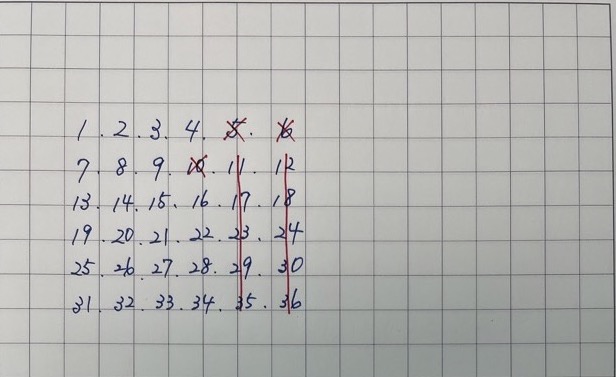 1 . 2 . 3 . 4 . 5 . 6
7 . 8 . 9 . 10 . 11 . 12
13 . 14 . 15 . 16 . 17 . 18
19 . 20 . 21 . 22 . 23 . 24
25 . 26 . 27 . 28 . 29 . 30
31 . 32 . 33 . 34 . 35 . 36